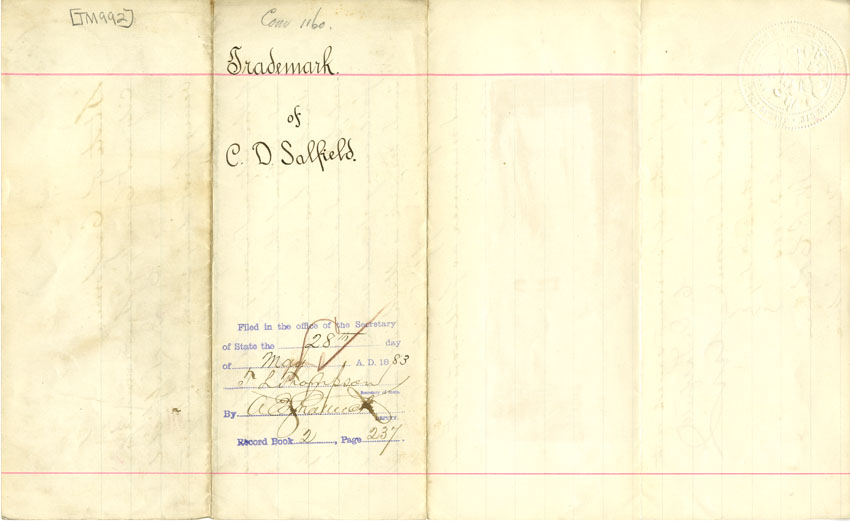 [TM992]
Conv 1160.
Trademark.
of
C. D. Salfield.
Filed in the office of the Secretary
of State the 28th day
of May A. D. 1883
T L Thompson
Secretary of State.
By
DEPUTY.
Record Book 2, Page 237.